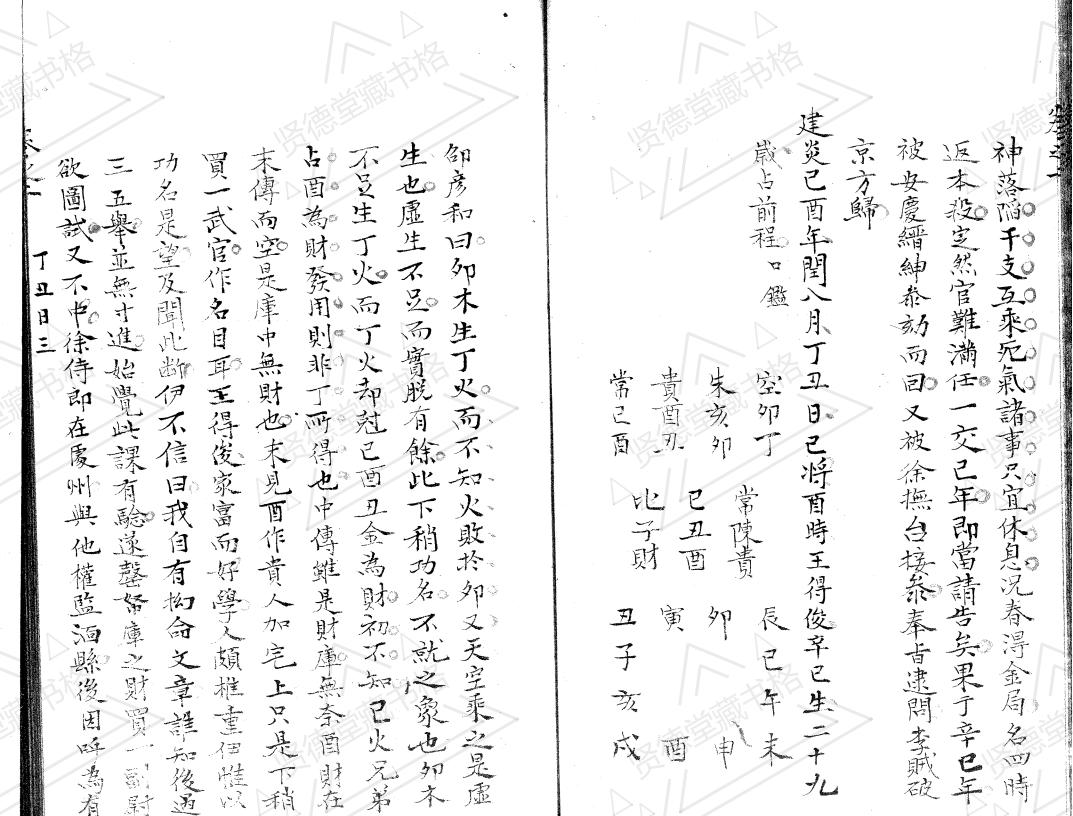 神落陷干支互乘死氣諸事只宜休息况春得金局名四時
返本殺定然官難滿任一交巳年即當請告矣果丁辛巳年
被安慶縉紳叅劾而回又被徐撫台接叅奉旨逮問李賊破
京方歸
建炎己酉年閏八月丁丑日巳將酉時王得俊辛巳生二十九
歲占前程
鑑
空卯丁
朱亥卯
貴酉丑
常巳酉
常陳貴
巳丑酉
比子財
辰巳午未
卯 申
寅 酉
丑子亥戌
邵彦和曰卯木生丁火而不知火敗於卯又天空乘之是虛
生也虛生不足而實脫有餘此下稍功名不就之象也卯木
不足生丁火而丁火却尅巳酉丑金為財初不知巳火兄弟
占酉為財發用則非丁所得也中傳雖是財庫無奈酉財在
末傳而空是庫中無財也末見酉作貴人加宅上只是下稍
買一武官作名目耳王得俊家富而好學人頗推重伊惟以
功名是望及聞此斷伊不信曰我自有拗命文章誰知後過
三五舉並無寸進始覺此課有驗遂罄帑庫之財買一副尉
欲圖試又不中徐侍郎在處州與他權監酒縣後因呼為有
丁丑日三